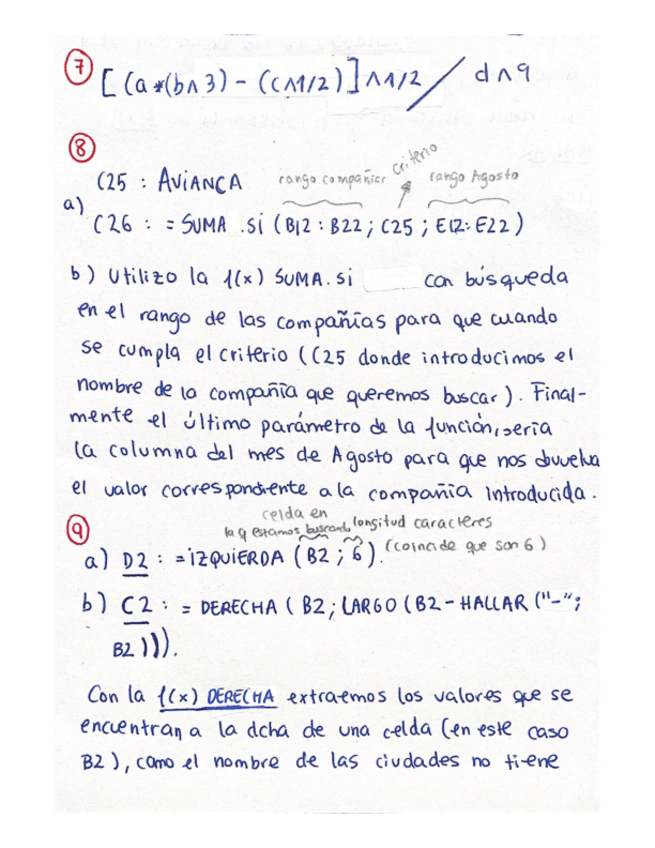 7 [(a*(b∧3) - (c∧1/2)]∧1/2 / d∧9
8
C25 : AVIANCA rango compañías criterio rango Agosto
a)
C26 : = SUMA .Si (B12 : B22 ; C25 ; E12: E22)
b) Utilizo la f(x) SUMA.si con búsqueda
en el rango de las compañías para que cuando
se cumpla el criterio (C25 donde introducimos el
nombre de la compañía que queremos buscar). Final-
mente el último parámetro de la función, sería
la columna del mes de Agosto para que nos devuelva
el valor correspondiente a la compañía introducida.
9 celda en
la q estamos buscando longitud caracteres
a) D2 : = iZQUiERDA (B2 ; 6). (coincide que son 6)
b) C2 : = DERECHA ( B2 ; LARGO (B2 - HALLAR ("-";
B2 ))).
Con la f(x) DERECHA extraemos los valores que se
encuentran a la dcha de una celda (en este caso
B2), como el nombre de las ciudades no tiene